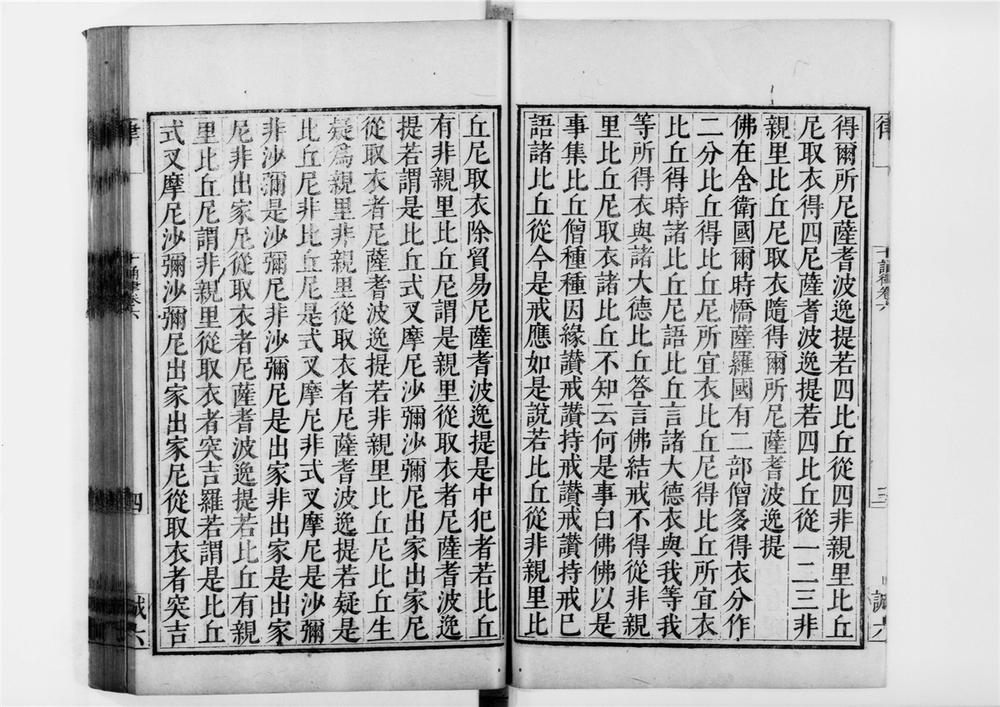 得爾所尼薩耆波逸提若四比丘從四非親里比丘
尼取衣得四尼薩耆波逸提若四比丘從一二三非
親里比丘尼取衣隨得爾所尼薩耆波逸提
佛在舍衛國爾時憍薩羅國有二部僧多得衣分作
二分比丘得比丘尼所宜衣比丘尼得比丘所宜衣
比丘得時諸比丘尼語比丘言諸大德衣與我等我
等所得衣與諸大德比丘答言佛結戒不得從非親
里比丘尼取衣諸比丘不知云何是事白佛佛以是
事集比丘僧種種因緣讚戒讚持戒讚戒讚持戒已
語諸比丘從今是戒應如是說若比丘從非親里比
十誦律卷六
三
誠六
丘尼取衣除貿易尼薩耆波逸提是中犯者若比丘
有非親里比丘尼謂是親里從取衣者尼薩耆波逸
提若謂是比丘式叉摩尼沙彌沙彌尼出家出家尼
從取衣者尼薩耆波逸提若非親里比丘尼比丘生
疑爲親里非親里從取衣者尼薩耆波逸提若疑是
比丘尼非比丘尼是式叉摩尼非式叉摩尼是沙彌
非沙彌是沙彌尼非沙彌尼是出家非出家是出家
尼非出家尼從取衣者尼薩耆波逸提若比丘有親
里比丘尼謂非親里從取衣者突吉羅若謂是比丘
式叉摩尼沙彌沙彌尼出家出家尼從取衣者突吉
律
十誦律卷六
四
誠六